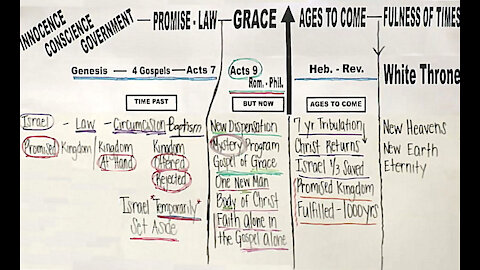 INNOCENCE
CONSCIENCE
GOVERNMENT
PROMISE - LAW
GRACE
AGES TO COME
FULNESS OF TIMES
Genesis - 4 Gospels - Acts 7
Acts 9
Rom. - Phil.
Heb. - Rev.
White Throne
TIME PAST
BUT NOW
AGES TO COME
Israel - Law - Circumcision Baptism
Promised Kingdom
Kingdom
At Hand
Kingdom
Offered
Rejected
Israel Temporarily
Set Aside
New Dispensation
Mystery Program
Gospel of Grace
One New Man
Body of Christ
Faith alone in
the Gospel alone
7 yr Tribulation
Christ Returns
Israel 1/3 Saved
Promised Kingdom
Fulfilled - 1000yrs
New Heavens
New Earth
Eternity